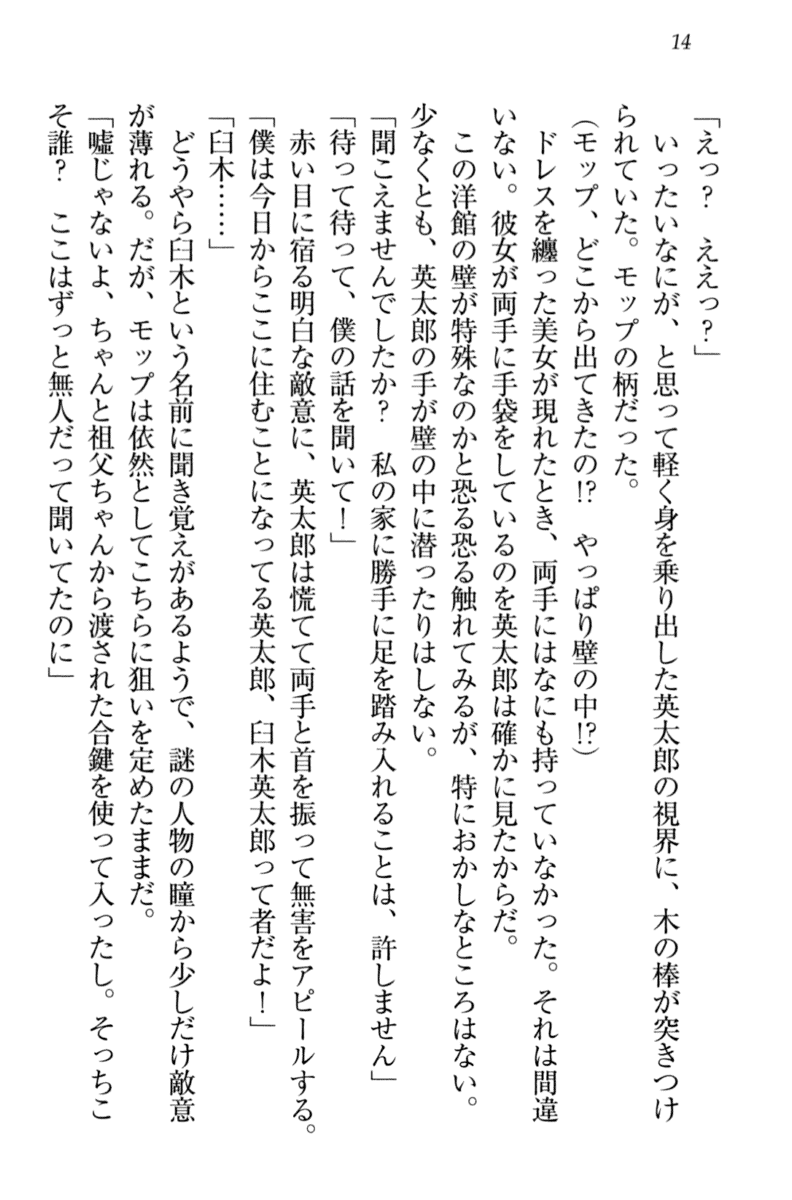 14
「えっ？　ええっ？」
　いったいなにが、と思って軽く身を乗り出した英太郎の視界に、木の棒が突きつけ
られていた。モップの柄だった。
（モップ、どこから出てきたの!?　やっぱり壁の中!?）
　ドレスを纏った美女が現れたとき、両手にはなにも持っていなかった。それは間違
いない。彼女が両手に手袋をしているのを英太郎は確かに見たからだ。
　この洋館の壁が特殊なのかと恐る恐る触れてみるが、特におかしなところはない。
少なくとも、英太郎の手が壁の中に潜ったりはしない。
「聞こえませんでしたか？　私の家に勝手に足を踏み入れることは、許しません」
「待って待って、僕の話を聞いて！」
　赤い目に宿る明白な敵意に、英太郎は慌てて両手と首を振って無害をアピールする。
「僕は今日からここに住むことになってる英太郎、臼木英太郎って者だよ！」
「臼木……」
　どうやら臼木という名前に聞き覚えがあるようで、謎の人物の瞳から少しだけ敵意
が薄れる。だが、モップは依然としてこちらに狙いを定めたままだ。
「嘘じゃないよ、ちゃんと祖父ちゃんから渡された合鍵を使って入ったし。そっちこ
そ誰？　ここはずっと無人だって聞いてたのに」